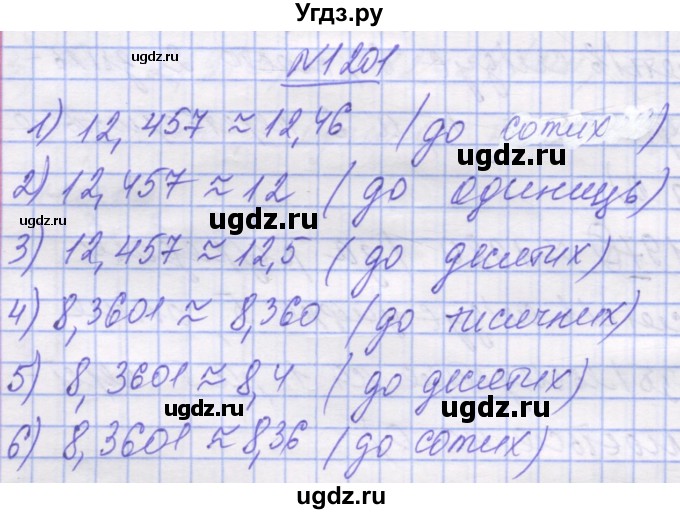 Угдз.ру
ugdz.ru
№1201
1) 12,457 ≈ 12,46 (до сотих)
ugdz.ru
2) 12,457 ≈ 12 (до одиниць)
ugdz.ru ugdz.ru
3) 12,457 ≈ 12,5 (до десятих)
ugdz.ru
4) 8,3601 ≈ 8,360 (до тисячних)
ugdz.ru
5) 8,3601 ≈ 8,4 (до десятих)
ugdz.ru ugdz.ru
6) 8,3601 ≈ 8,36 (до сотих)
ugdz.ru
ugdz.ru